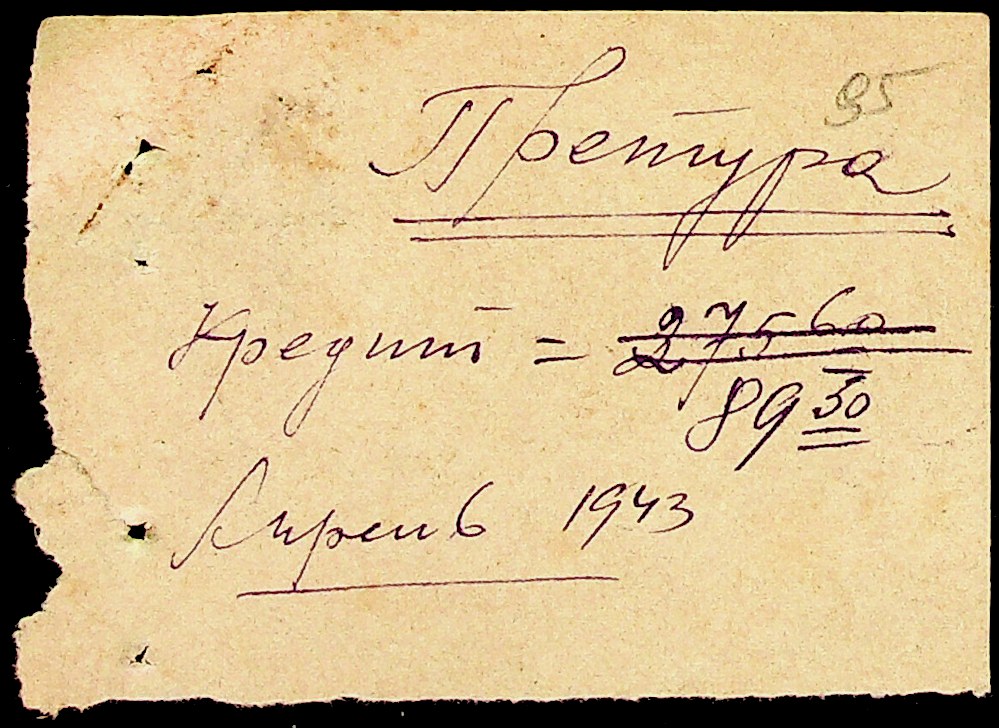 95
Претура
Кредит = 275 60
89 30
Апрель 1943